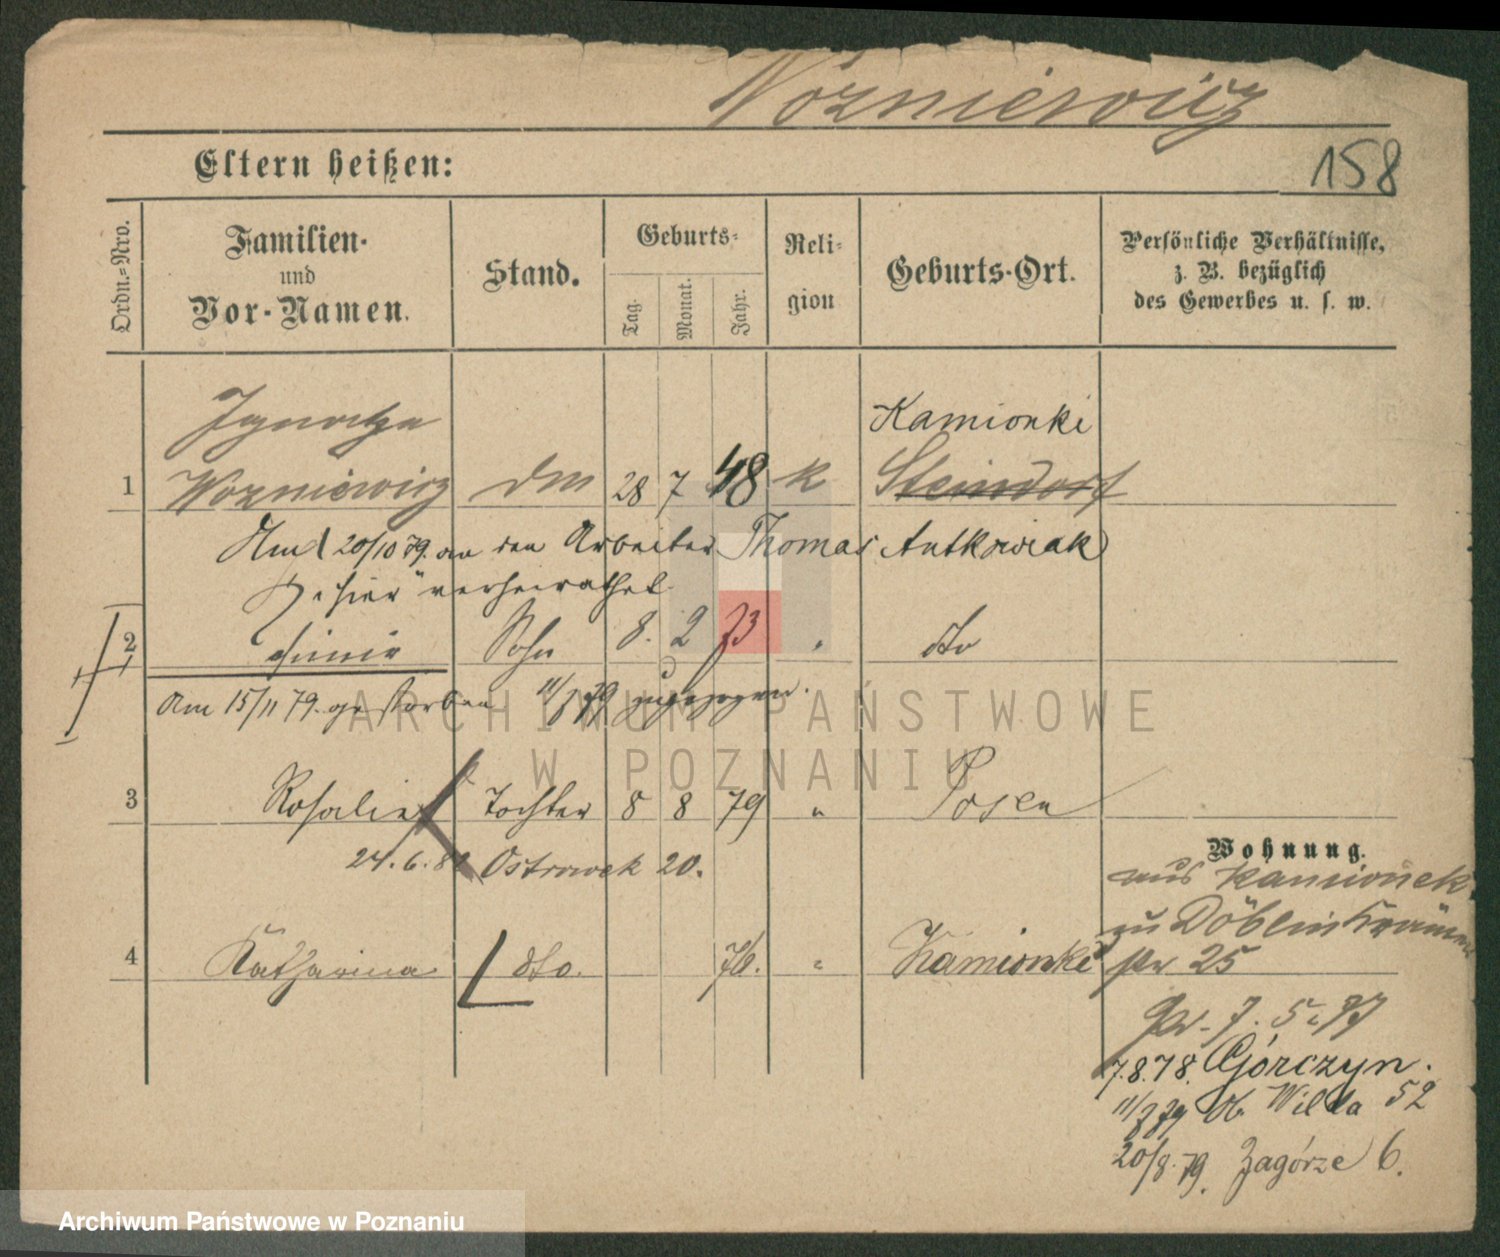 Wozniewicz
158
Eltern heißen:
Ordn.-Nro.
Familien-
und
Vor-Namen.
Stand.
Geburts-
Tag.
Monat.
Jahr.
Reli-
gion
Geburts-Ort.
Persönliche Verhältnisse,
z. B. bezüglich
des Gewerbes u. s. w.
Kamionki
1 Wozniewicz 28 7 48 k Steindorf
Am 20/10 79. an den Arbeiter Thomas Antkowiak
hier verheirathet.
2 Sohn 8. 2 73 " dto
Am 15/11 79. gestorben 11/7 79 zugezogen.
3 Rosalie Tochter 8 8 79 " Posen
24. 6. 82 Ostrowek 20.
4 Katharina dto. 76. " Kamionki
Wohnung.
aus Kamionek
zu Döblin
25
7. 5. 77
7.8.78. Górczyn.
11/7 79 Ob. Wilda 52
20/8. 79. Zagórze 6.
ARCHIWUM PAŃSTWOWE
W POZNANIU
Archiwum Państwowe w Poznaniu